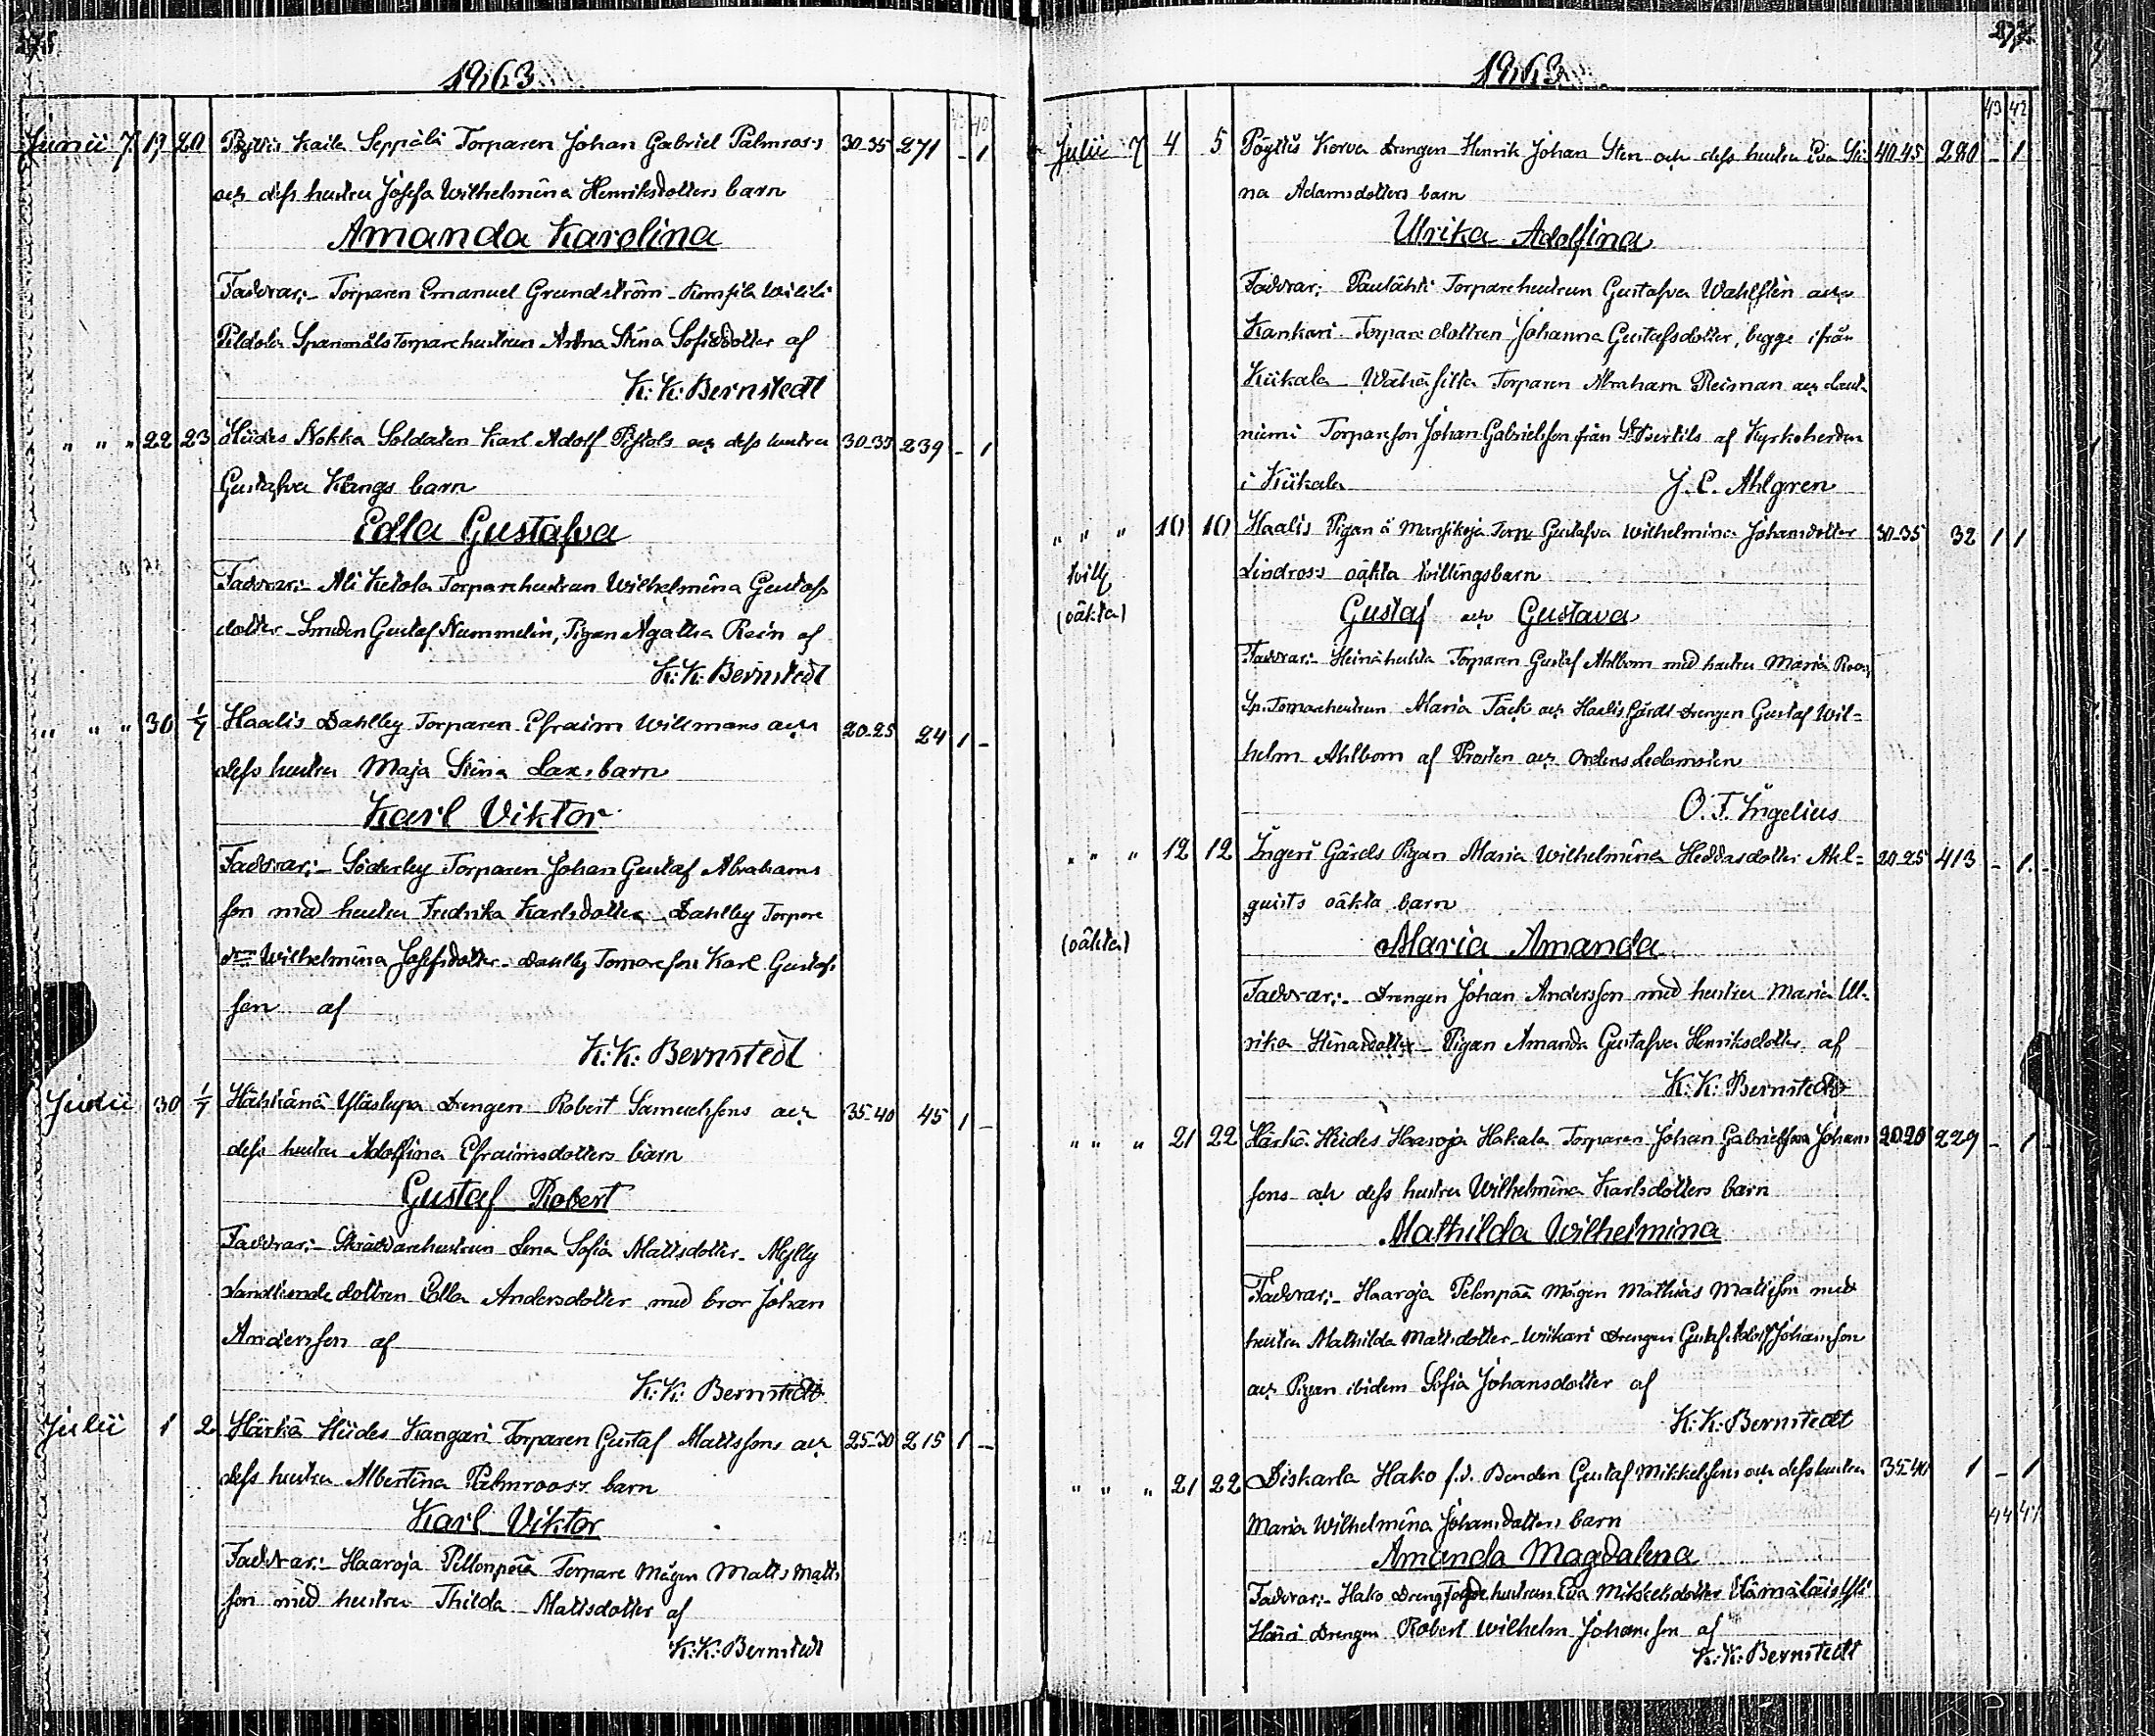 1863
Junii 7. 19 20 Kaila Seppälä Torparen Johan Gabriel Palmross 30-35 271 - 1
och dess hustru Josefa Wilhelmina Henriksdotters barn
Amanda Karolina
Faddrar:- Torparen Emanuel Grundström
Torparehustrun Anna Stina af
K: K: Bernstedt
" " " 22 23 Hiides Nokka Soldaten Karl Adolf Pistols och dess hustru 30-35 239 - 1
Gustafva Kangs barn
Edla Gustafva
Faddrar:- Ali Ketola Torparehustrun Wilhelmina Gustafs
dotter - Smeden Gustaf Nummelin, Pigan Agatha Rein af
K: K: Bernstedt
" " " 30 1/7 Haalis Dahlby Torparen Efraim Willmans och 20-25 24 1 -
dess hustru Maja Stina Lax's barn
Karl Viktor
Faddrar:- Söderby Torparen Johan Gustaf Abrahams
son med hustru Fredrika Karlsdotter - Dahlby Torpare
Wilhelmina Josefsdotter - Dahlby Karl Gustafs
son af
K: K: Bernstedt
30 1/7 Drengen Robert Samuelssons och 35-40 45 1 -
dess hustru Adolfina Efraimsdotters barn
Gustaf Robert
Faddrar:- Skräddarehustrun Lena Sofia Mattsdotter - Mylly
dottren Edla Andersdotter med bror Johan
Andersson af
K: K: Bernstedt
Julii 1 2 Härkä Hiides Kangari Torparen Gustaf Mattssons och 25-30 215 1 -
dess hustru Albertina Palmrooss barn
Karl Viktor
Faddrar:- Haaroja Pellonpää Torpare Mågen Matts Matts
son med hustru Thilda Mattsdotter af
K: K: Bernstedt
1863
43 42
Julii 7 4 5 Pöytiö Korva Drengen Henrik Johan Sten och dess hustru Eva Sti 40-45 280 - 1
na Adamsdotters barn
Ulrika Adolfina
Faddrar: Torparehustrun Gustafva Wahlsten och
Kankari Torpare dottren Johanna Gustafsdotter, begge ifrån
Kiikala - Torparen Abraham Reiman och Laut
niemi Torpareson Johan Gabrielsson från St Bertils af Kyrkoherden
i Kiikala J. E. Ahlgren
" " " 10 10 Haalis Pigan å Torp Gustafva Wilhelmina Johansdotter 30-35 32 1 1
Lindross oäkta tvillingsbarn
tvill
(oäkta)
Gustaf och Gustava
Faddrar:- Torparen Gustaf Ahlbom med hustru Maria Roos,
Maria Täck och Haalis Gårds drengen Gustaf Wil=
helm Ahlbom af Prosten och Ordens Ledamoten
O. F. Ingelius
" " " 12 12 Ingeri Gårds Pigan Maria Wilhelmina Heddasdotter Ahl= 20-25 413 - 1
quists oäkta barn
(oäkta)
Maria Amanda
Faddrar:- Drengen Johan Andersson med hustru Maria Ul-
rika Stinasdotter - Pigan Amanda Gustafva Henriksdotter af
K: K: Bernstedt
" " " 21 22 Härkä Hiides Haaroja Hakala Torparen Johan Gabrielsson Johans 229 - 1
sons och dess hustru Wilhelmina Karlsdotters barn
Mathilda Wilhelmina
Faddrar:- Haaroja Pelonpää Mågen Mathias Mattsson med
hustru Mathilda Mattsdotter - Wiikari Drengen Gustaf Adolf Johansson
och Pigan ibidem Sofia Johansdotter af
K: K: Bernstedt
" " " 21 22 Diskarla Hako f.d. Bonden Gustaf Mikkelssons och dess hustru 35-40 1 - 1
Maria Wilhelmina Johansdotters barn
Amanda Magdalena
Faddrar:- Hako hustrun Eva Mikkelsdotter
Drengen Robert Wilhelm Johansson af
K: K: Bernstedt